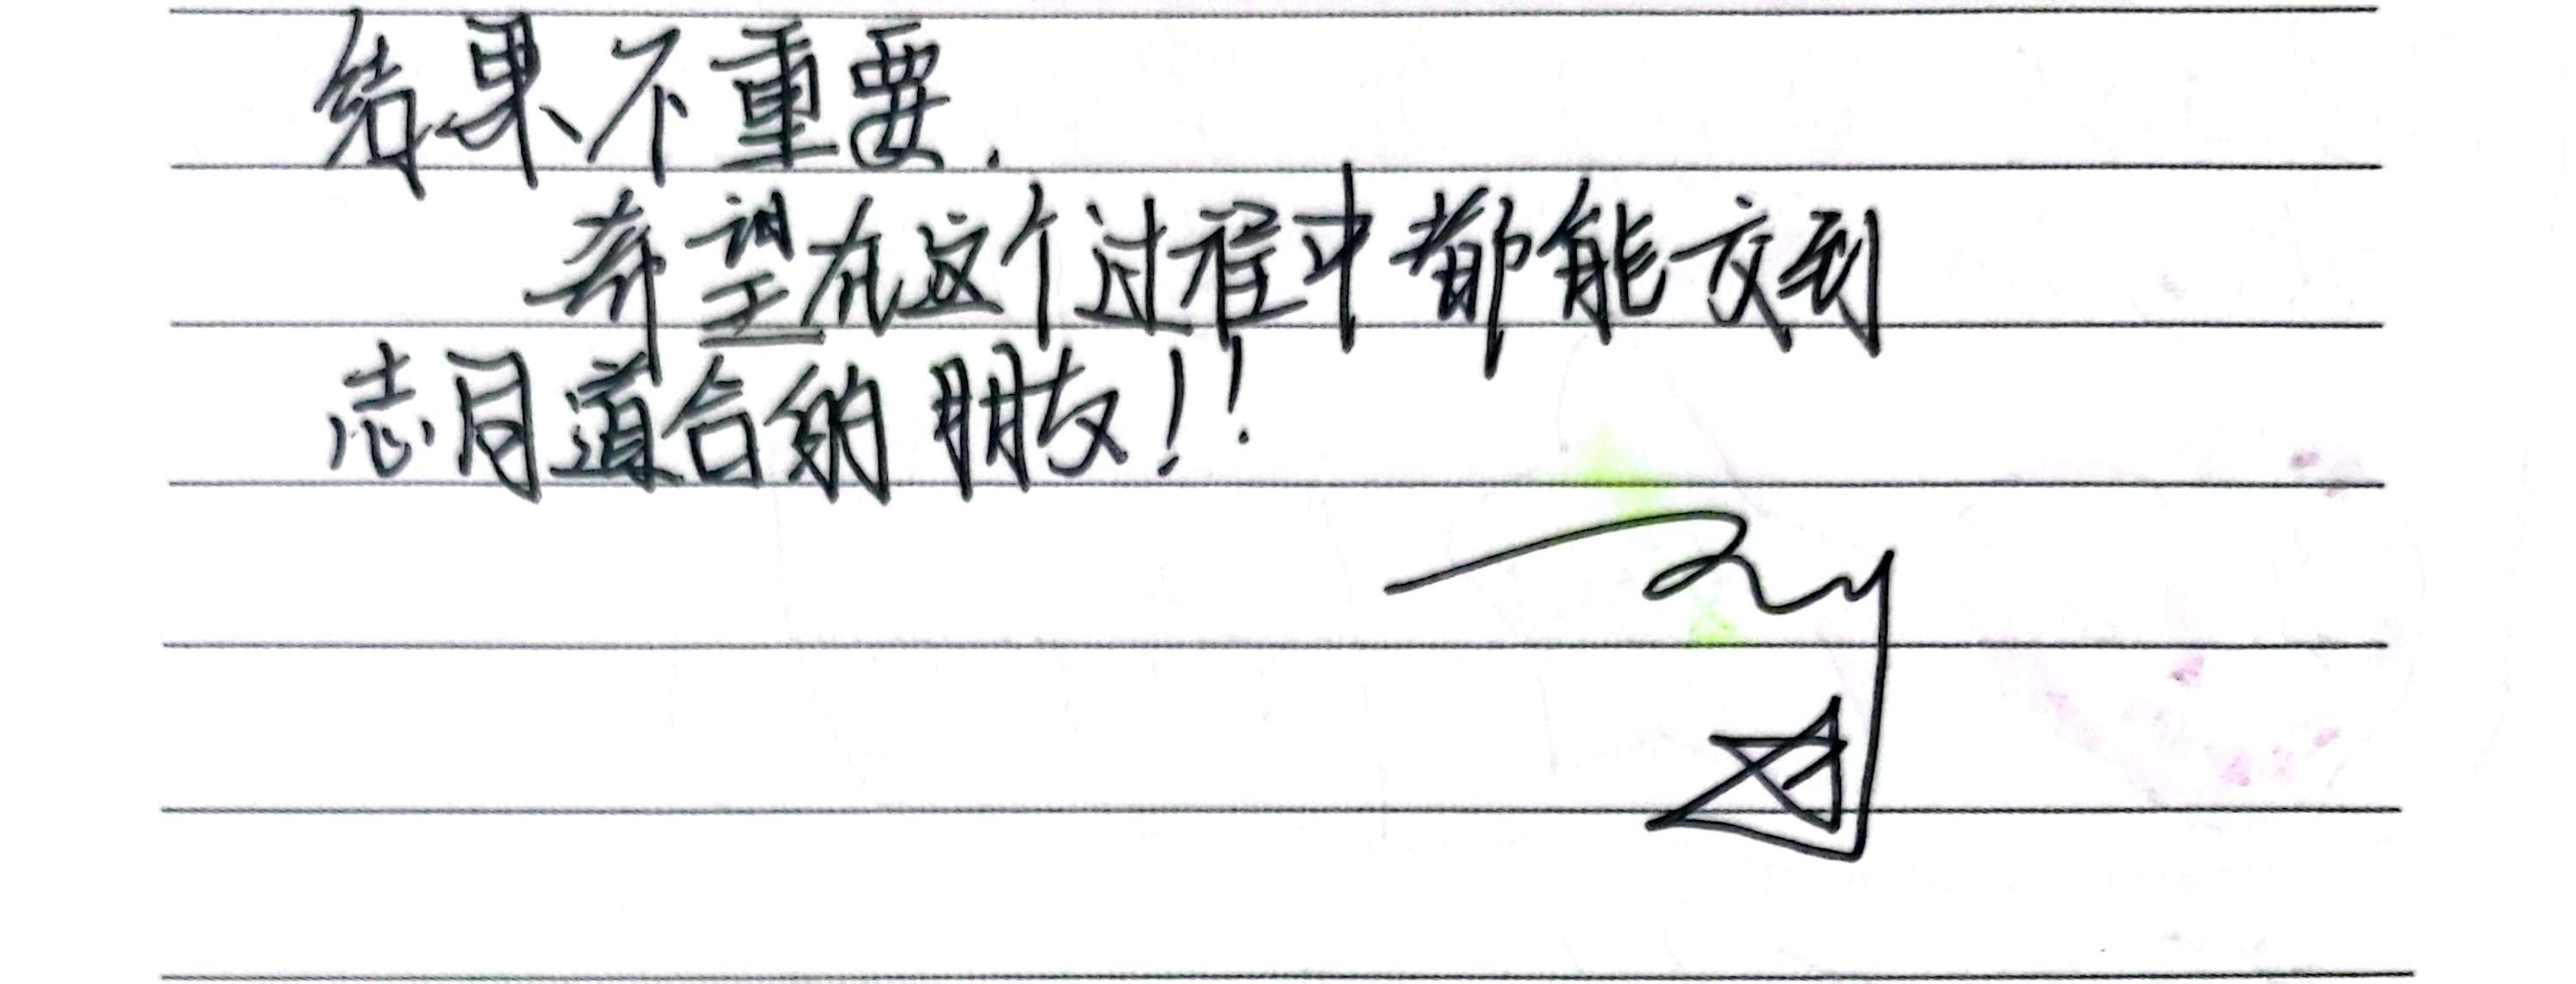 结果不重要.
希望在这个过程中都能交到
志同道合的朋友!!